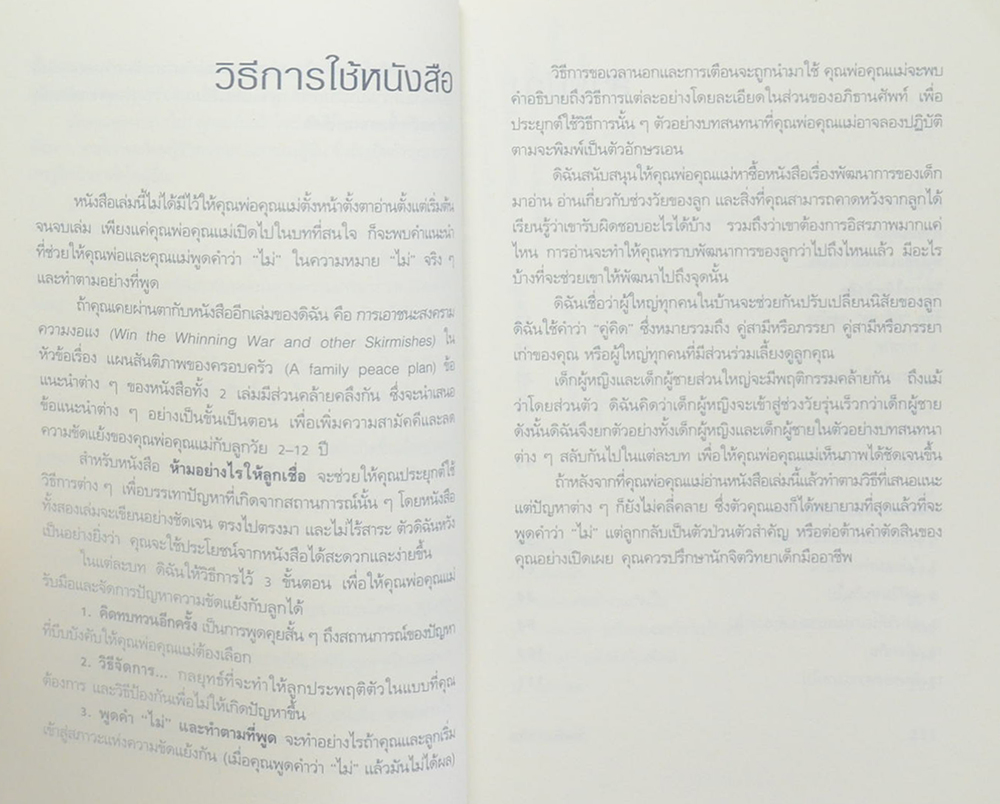 วิธีการใช้หนังสือ
หนังสือเล่มนี้ไม่ได้มีไว้ให้คุณพ่อคุณแม่ตั้งหน้าตั้งตาอ่านตั้งแต่เริ่มต้น
จนจบเล่ม เพียงแค่คุณพ่อคุณแม่เปิดไปในบทที่สนใจ ก็จะพบคำแนะนำ
ที่ช่วยให้คุณพ่อและคุณแม่พูดคำว่า "ไม่" ในความหมาย "ไม่" จริง ๆ
และทำตามอย่างที่พูด
ถ้าคุณเคยผ่านตากับหนังสืออีกเล่มของดิฉัน คือ การเอาชนะสงคราม
ความงอแง (Win the Whinning War and other Skirmishes) ใน
หัวข้อเรื่อง แผนสันติภาพของครอบครัว (A family peace plan) ข้อ
แนะนำต่าง ๆ ของหนังสือทั้ง 2 เล่มมีส่วนคล้ายคลึงกัน ซึ่งจะนำเสนอ
ข้อแนะนำต่าง ๆ อย่างเป็นขั้นเป็นตอน เพื่อเพิ่มความสามัคคีและลด
ความขัดแย้งของคุณพ่อคุณแม่กับลูกวัย 2-12 ปี
สำหรับหนังสือ ห้ามอย่างไรให้ลูกเชื่อ จะช่วยให้คุณประยุกต์ใช้
วิธีการต่าง ๆ เพื่อบรรเทาปัญหาที่เกิดจากสถานการณ์นั้น ๆ โดยหนังสือ
ทั้งสองเล่มจะเขียนอย่างชัดเจน ตรงไปตรงมา และไม่ไร้สาระ ตัวดิฉันหวัง
เป็นอย่างยิ่งว่า คุณจะใช้ประโยชน์จากหนังสือได้สะดวกและง่ายขึ้น
ในแต่ละบท ดิฉันให้วิธีการไว้ 3 ขั้นตอน เพื่อให้คุณพ่อคุณแม่
รับมือและจัดการปัญหาความขัดแย้งกับลูกได้
1. คิดทบทวนอีกครั้ง เป็นการพูดคุยสั้น ๆ ถึงสถานการณ์ของปัญหา
ที่บีบบังคับให้คุณพ่อคุณแม่ต้องเลือก
2. วิธีจัดการ... กลยุทธ์ที่จะทำให้ลูกประพฤติตัวในแบบที่คุณ
ต้องการ และวิธีป้องกันเพื่อไม่ให้เกิดปัญหาขึ้น
3. พูดคำ "ไม่" และทำตามที่พูด จะทำอย่างไรถ้าคุณและลูกเริ่ม
เข้าสู่สภาวะแห่งความขัดแย้งกัน (เมื่อคุณพูดคำว่า "ไม่" แล้วมันไม่ได้ผล)
วิธีการขอเวลานอกและการเตือนจะถูกนำมาใช้ คุณพ่อคุณแม่จะพบ
คำอธิบายถึงวิธีการแต่ละอย่างโดยละเอียดในส่วนของอภิธานศัพท์ เพื่อ
ประยุกต์ใช้วิธีการนั้น ๆ ตัวอย่างบทสนทนาที่คุณพ่อคุณแม่อาจลองปฏิบัติ
ตามจะพิมพ์เป็นตัวอักษรเอน
ดิฉันสนับสนุนให้คุณพ่อคุณแม่หาซื้อหนังสือเรื่องพัฒนาการของเด็ก
มาอ่าน อ่านเกี่ยวกับช่วงวัยของลูก และสิ่งที่คุณสามารถคาดหวังจากลูกได้
เรียนรู้ว่าเขารับผิดชอบอะไรได้บ้าง รวมถึงว่าเขาต้องการอิสรภาพมากแค่
ไหน การอ่านจะทำให้คุณทราบพัฒนาการของลูกว่าไปถึงไหนแล้ว มีอะไร
บ้างที่จะช่วยเขาให้พัฒนาไปถึงจุดนั้น
ดิฉันเชื่อว่าผู้ใหญ่ทุกคนในบ้านจะช่วยกันปรับเปลี่ยนนิสัยของลูก
ดิฉันใช้คำว่า "คู่คิด" ซึ่งหมายรวมถึง คู่สามีหรือภรรยา คู่สามีหรือภรรยา
เก่าของคุณ หรือผู้ใหญ่ทุกคนที่มีส่วนร่วมเลี้ยงดูลูกคุณ
เด็กผู้หญิงและเด็กผู้ชายส่วนใหญ่จะมีพฤติกรรมคล้ายกัน ถึงแม้
ว่าโดยส่วนตัว ดิฉันคิดว่าเด็กผู้หญิงจะเข้าสู่ช่วงวัยรุ่นเร็วกว่าเด็กผู้ชาย
ดังนั้นดิฉันจึงยกตัวอย่างทั้งเด็กผู้หญิงและเด็กผู้ชายในตัวอย่างบทสนทนา
ต่าง ๆ สลับกันไปในแต่ละบท เพื่อให้คุณพ่อคุณแม่เห็นภาพได้ชัดเจนขึ้น
ถ้าหลังจากที่คุณพ่อคุณแม่อ่านหนังสือเล่มนี้แล้วทำตามวิธีที่เสนอแนะ
แต่ปัญหาต่าง ๆ ก็ยังไม่คลี่คลาย ซึ่งตัวคุณเองก็ได้พยายามที่สุดแล้วที่จะ
พูดคำว่า "ไม่" แต่ลูกกลับเป็นตัวป่วนตัวสำคัญ หรือต่อต้านคำตัดสินของ
คุณอย่างเปิดเผย คุณควรปรึกษานักจิตวิทยาเด็กมืออาชีพ